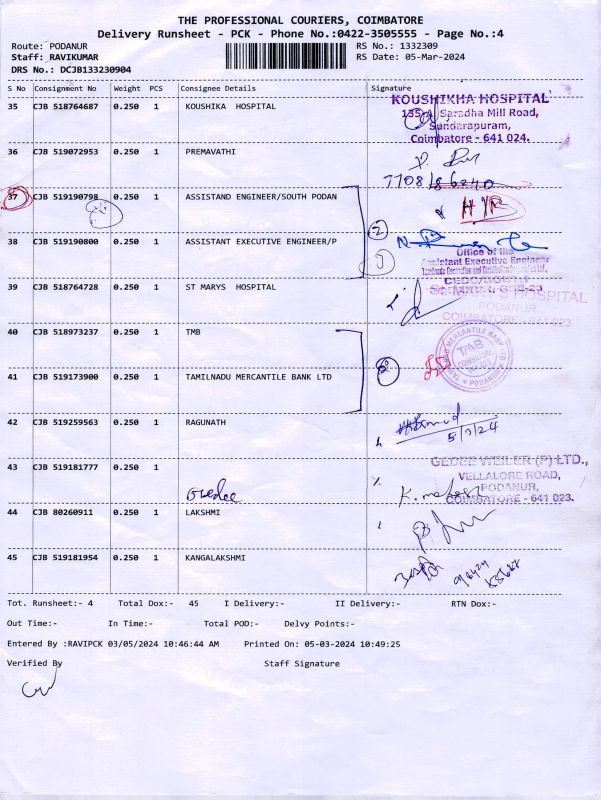 THE PROFESSIONAL COURIERS, COIMBATORE
Delivery Runsheet - PCK - Phone No.:0422-3505555 - Page No.:4
Route: PODANUR RS No.: 1332309
Staff: RAVIKUMAR RS Date: 05-Mar-2024
DRS No.: DCJB133230904
S No Consignment No Weight PCS Consignee Details Signature
35 CJB 518764687 0.250 1 KOUSHIKA HOSPITAL
KOUSHIKHA HOSPITAL
135-A, Saradha Mill Road,
Sundarapuram,
Coimbatore - 641 024.
36 CJB 519072953 0.250 1 PREMAVATHI
7708186240
37 CJB 519190798 0.250 1 ASSISTAND ENGINEER/SOUTH PODAN
38 CJB 519190800 0.250 1 ASSISTANT EXECUTIVE ENGINEER/P
2
Office of the
Assistant Executive Engineer
39 CJB 518764728 0.250 1 ST MARYS HOSPITAL
ST. MARY'S HOSPITAL
PODANUR
COIMBATORE - 641 023
40 CJB 518973237 0.250 1 TMB
TAMILNAD MERCANTILE BANK LTD
TMB
COIMBATORE
PODANUR
41 CJB 519173900 0.250 1 TAMILNADU MERCANTILE BANK LTD
42 CJB 519259563 0.250 1 RAGUNATH
5/3/24
43 CJB 519181777 0.250 1
Gedee
GEDEE WEILER (P) LTD.,
VELLALORE ROAD,
PODANUR,
COIMBATORE - 641 023.
44 CJB 80260911 0.250 1 LAKSHMI
45 CJB 519181954 0.250 1 KANGALAKSHMI
Tot. Runsheet:- 4 Total Dox:- 45 I Delivery:- II Delivery:- RTN Dox:-
Out Time:- In Time:- Total POD:- Delvy Points:-
Entered By :RAVIPCK 03/05/2024 10:46:44 AM Printed On: 05-03-2024 10:49:25
Verified By Staff Signature